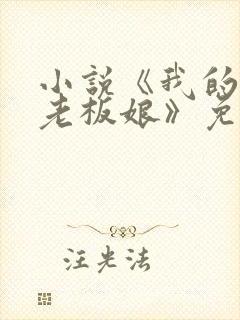 小说《我的
老板娘》免
汪光法